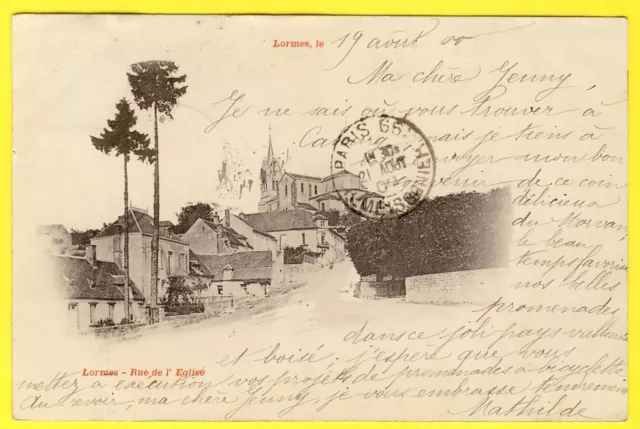 Lormes, le 19 août 00
Ma chère Jenny,
Je ne sais où vous trouver à
mais je tiens à
envoyer mon bon
souvenir de ce coin
délicieux
du Morvan,
le beau
temps favorise
nos belles
promenades
dans ce joli pays vallonné
et boisé. j'espère que vous
mettez à exécution vos projets de promenades à bicyclette
Au revoir, ma chère Jenny, je vous embrasse tendrement
Mathilde
PARIS 66
21 AOUT
Lormes – Rue de l' Eglise